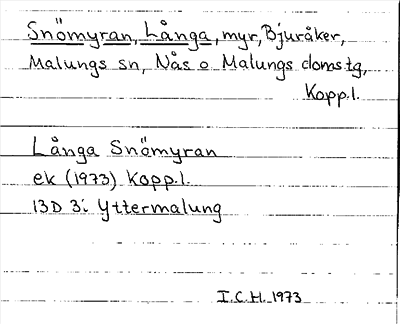 Snömyran, Långa, myr, Bjuråker,
Malungs sn, Nås o Malungs domstg,
Kopp.l.
Långa Snömyran
ek (1973) Kopp.l.
13D 3i Yttermalung
I.C.H. 1973